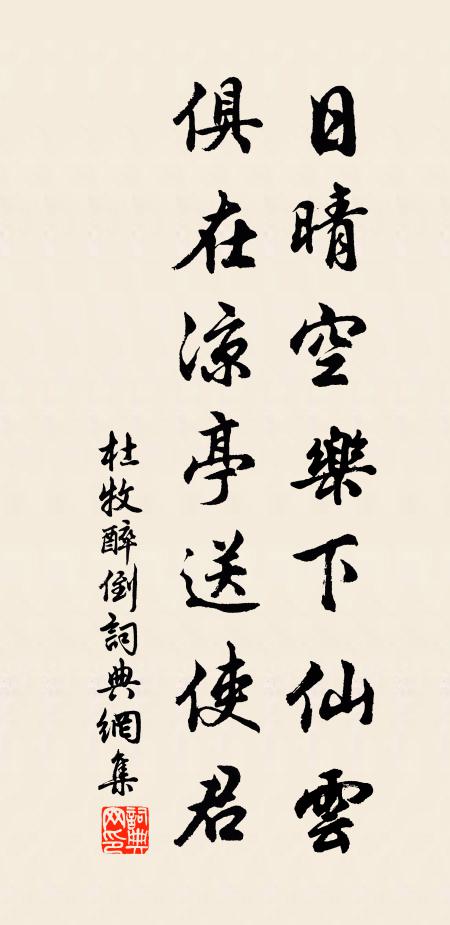 日晴空樂下仙雲
俱在涼亭送使君
杜牧醉倒詞典網集
詞典網印